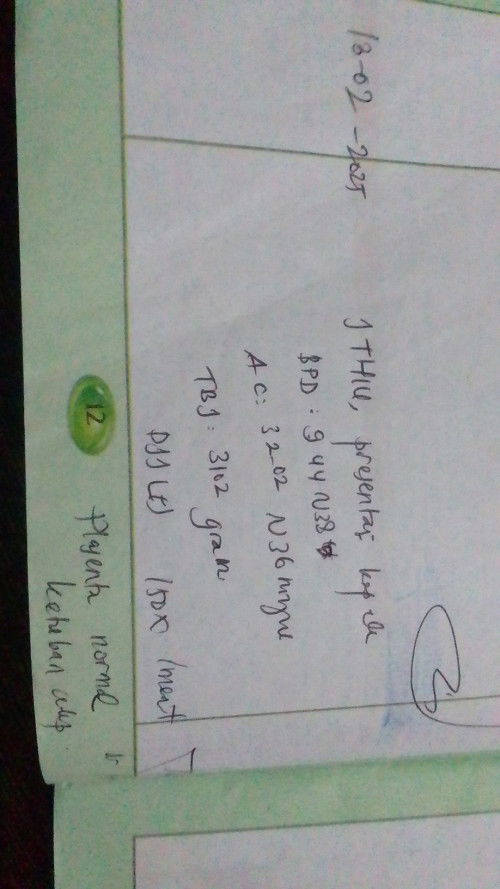 13-02-2025
JTHIU, presentasi kepala
BPD : 944 ~ 38
AC : 3202 ~ 36 mgg
TBJ : 3102 gram
DJJ (+) 150x /menit
Plasenta normal
ketuban cukup.
12